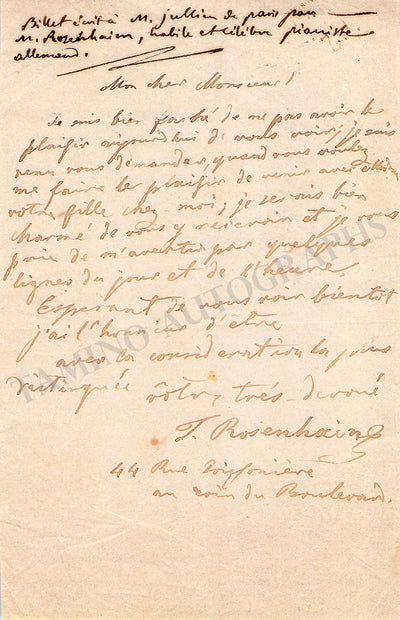 Billet écrit à M. Jullien de paris par
M. Rosenhaim, habile et célèbre pianiste
allemand.
Mon cher Monsieur!
Je suis bien faché de ne pas avoir le
plaisir aujourdhui de vous voir; je suis
venu vous demander, quand vous voulez
me faire le plaisir de venir avec
votre fille chez moi; je serais bien
charmé de vous y recevoir et je vous
prie de m'avertir par quelques
lignes du jour et de l'heure
Esperant de vous voir bientot
j'ai l'honneur d'être
avec la consideration la plus
distinguée
vôtre très-devoué
J. Rosenhain
44 Rue Poissonière
au coin du Boulevard.
TAMINO AUTOGRAPHS